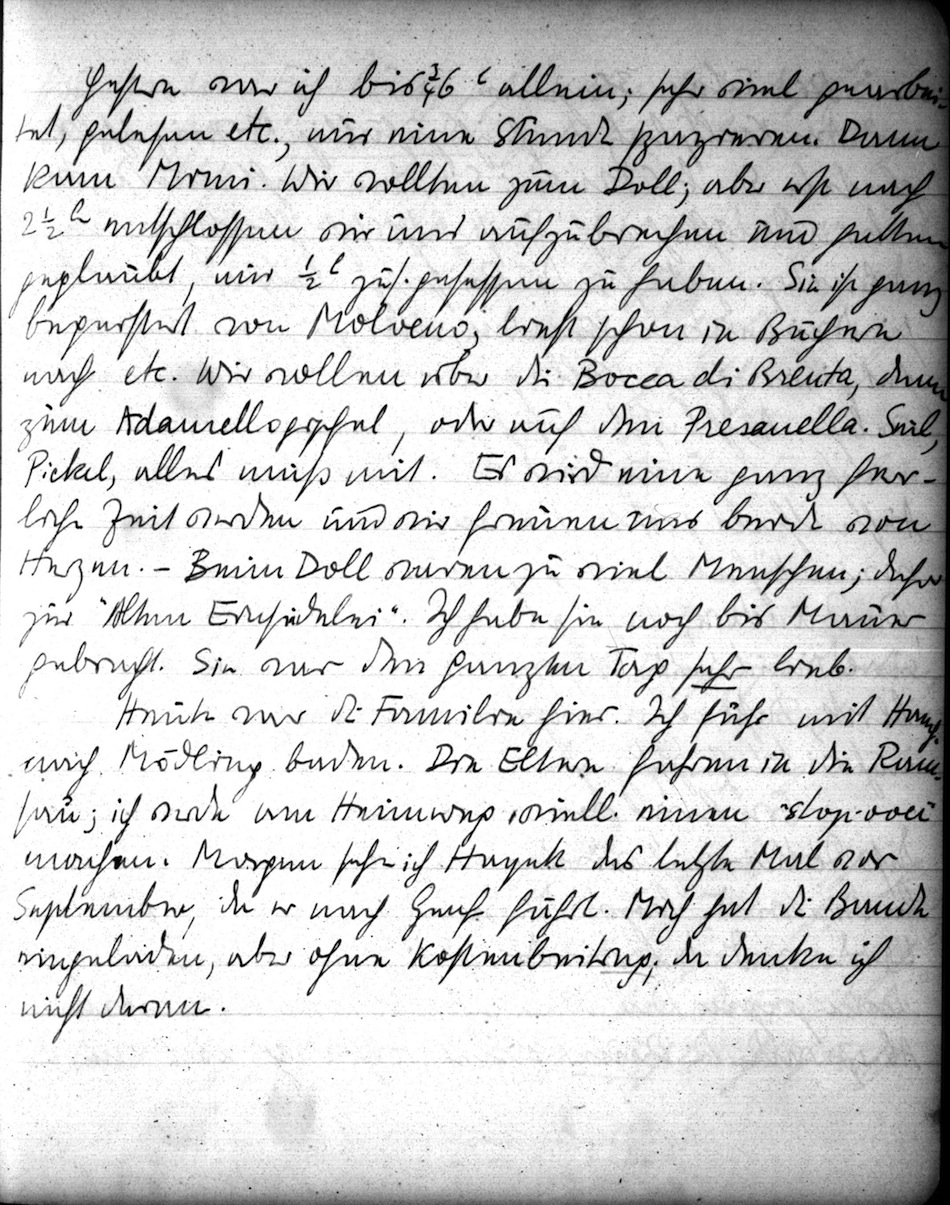 Gestern war ich bis ¾6 h allein; sehr viel gearbei-
tet, gelesen etc., nur eine Stunde spazieren. Dann
kam Mimi. Wir wollten zum Doll; aber erst nach
2½ h entschlossen wir uns aufzubrechen und hatten
geglaubt, nur ½ h zus. gesessen zu haben. Sie ist ganz
begeistert von Molveno; liest schon in Büchern
nach etc. Wir wollen über die Bocca di Brenta, dann
zum Adamellogipfel, oder auf den Presanella. Seil,
Pickel, alles muss mit. Es wird eine ganz herr-
liche Zeit werden und wir freuen uns beide von
Herzen. – Beim Doll waren zu viel Menschen; daher
zur "Alten Einsiedelei". Ich habe sie noch bis Mauer
gebracht. Sie war den ganzen Tag sehr lieb.
Heute war die Familie hier. Ich fuhr mit
nach Mödling baden. Die Eltern fuhren in die Ram-
sau; ich werde am Heimweg eventuell einen stop-over
machen. Morgen sehe ich Hayek das letzte Mal vor
September, da er nach Genf fährt. Mich hat die Bande
eingeladen, aber ohne Kostenbeitrag; da denke ich
nicht daran.